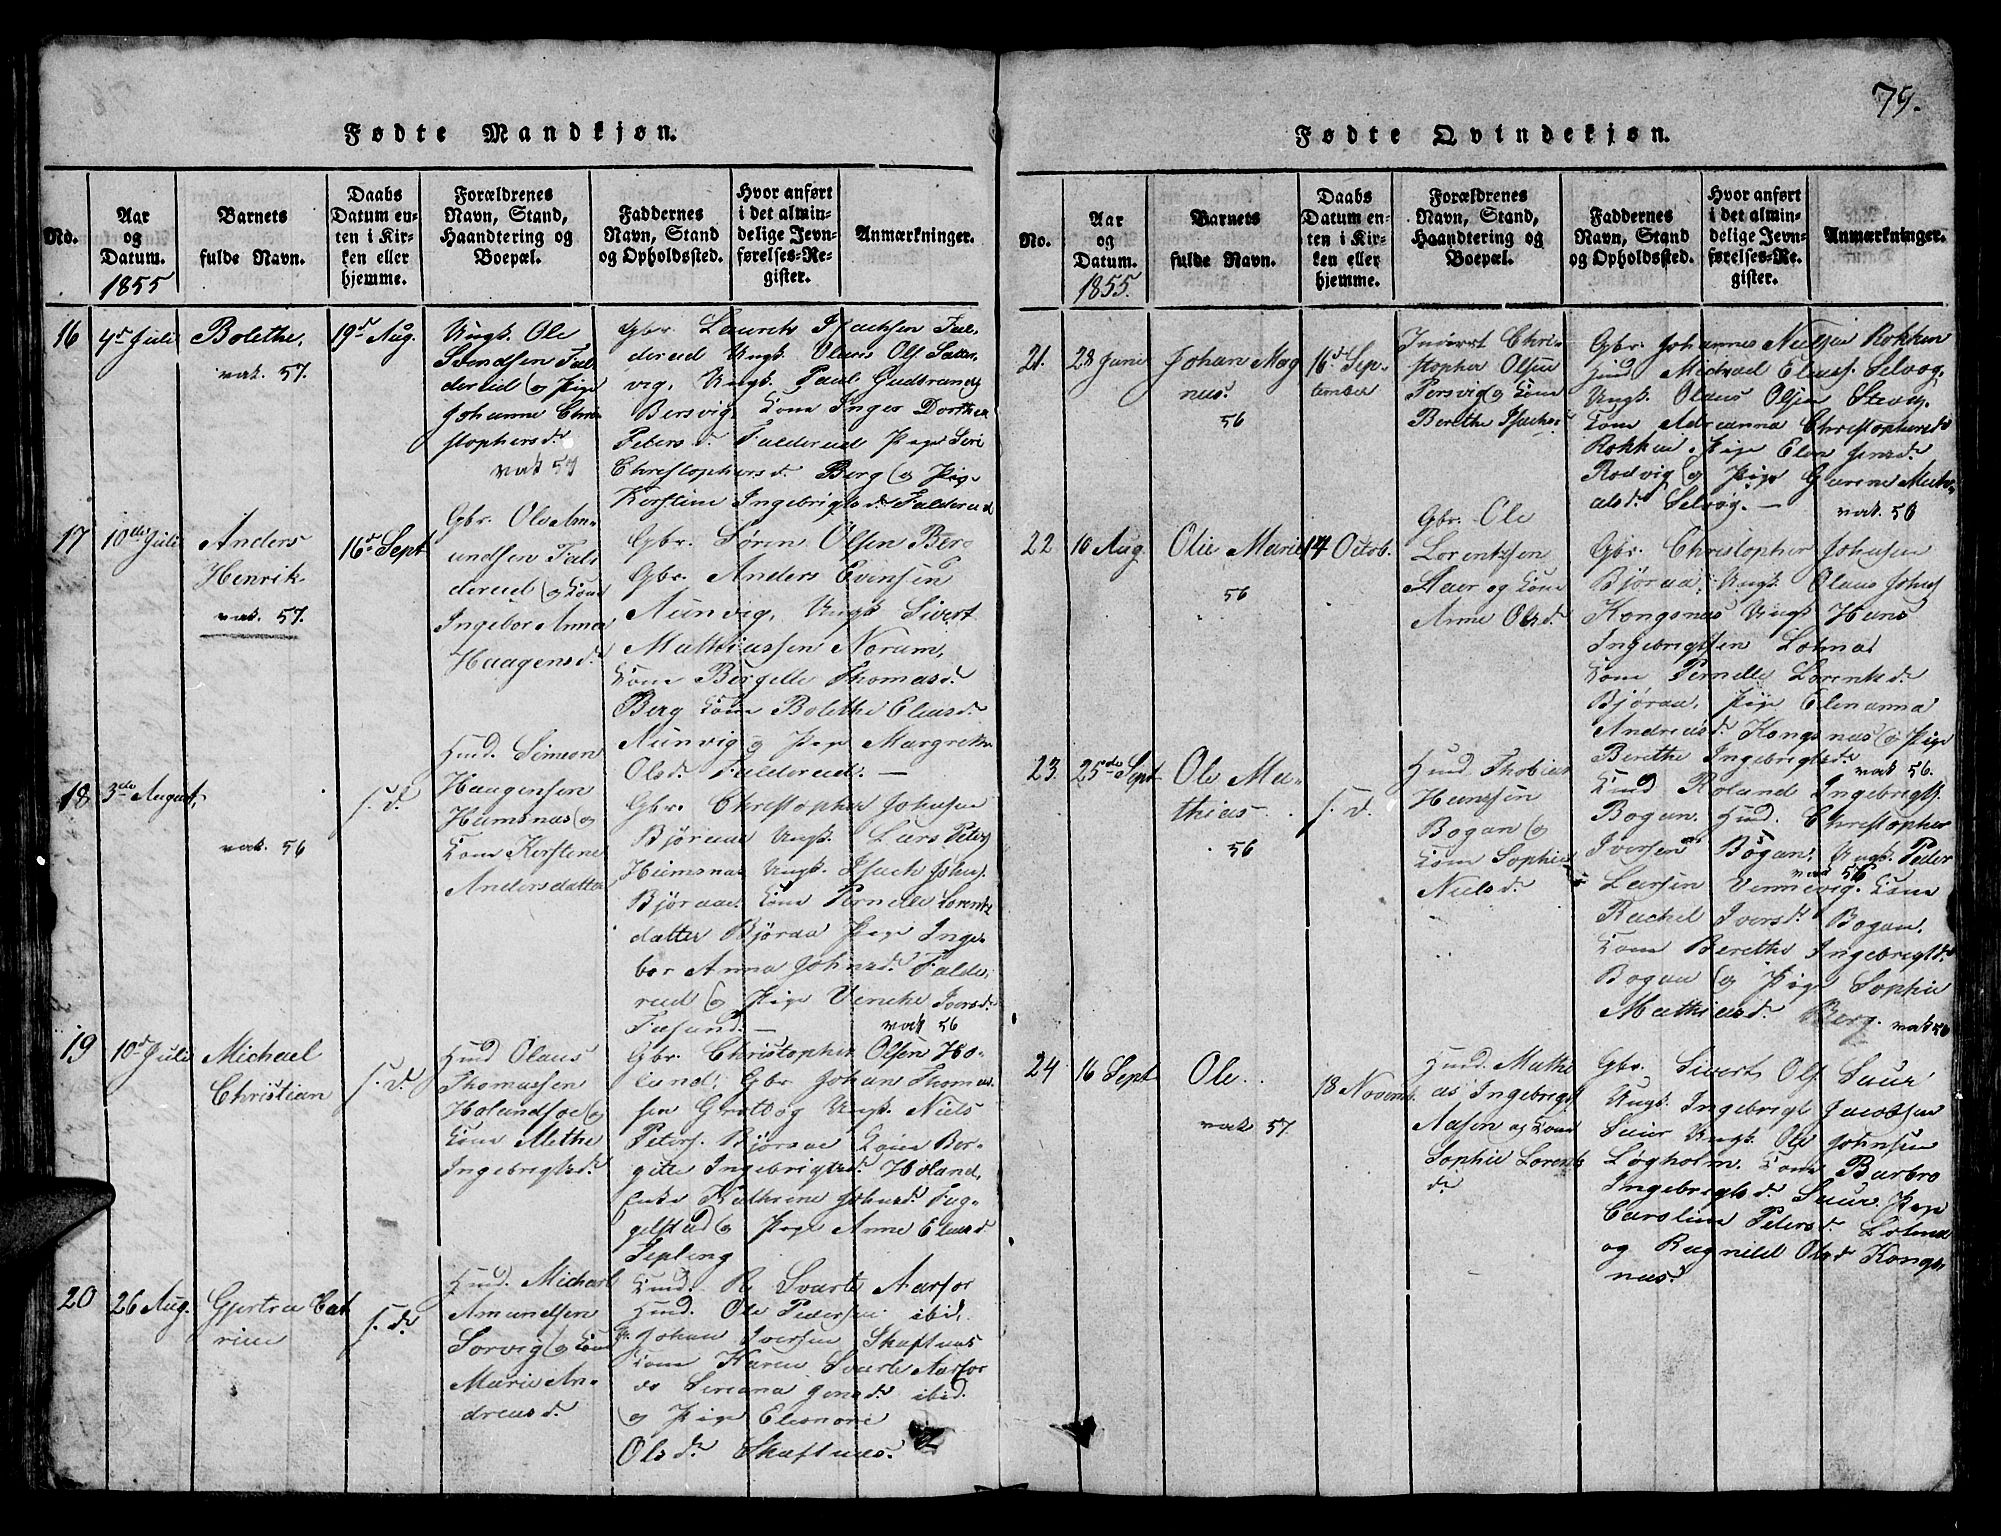 79.
Fødte Mandkjøn.
No.
Aar og Datum. 1855
Barnets fulde Navn.
Daabs Datum enten i Kirken eller hjemme.
Forældrenes Navn, Stand, Haandtering og Boepæl.
Faddernes Navn, Stand og Opholdssted.
Hvor anført i det almindelige Jevnførelses-Register.
Anmærkninger.
16
4d Juli
Bolethe,
vak. 57.
19d Aug.
Ungk. Ole
Svendsen Fal
dereid og Pige
Johanne Chri
stophersd.
vak 57
Gbr. Laurits Isachsen Fal,
dereid Ungk. Olaus Ols
vig, Ungk. Paul Gudbrands
Bersvig, Kone Inger Dorthea
Peters d. Faldereid Pige Seri
Christophersd. Berg og Pige
Kerstine Ingebrigtsd. Faldereid
17
10de Juli
Anders
Henrik
vak. 57.
16d Sept
Gbr. Ole Am
undsen Fal
dereid og Kone
Ingebor Anna
Haagensd.
Gbr. Søren Olsen Berg
Gbr. Anders Evensen
Aunvig, Ungk. Sivert
Mathiassen Norum,
Kone Bergette Thomasd.
Berg Kone Bolethe Eliasd.
Aunvig og Pige Margrethe
Olsd. Faldereid. —
18
3de August,
vak. 56
s. d.
Huusd. Simeon
Haagensen
Humsnæs og
Kone Kerstine
Andersdatter
Gbr. Christopher Johnsen
Bjøraa Ungk. Lars Peters
Humsnæs Ungk. Isach Johns.
Bjøraae Kone Pernelle Lorents
datter Bjøraa Pige Inge
bor Anna Johnsd. Falde
reid og Pige Venche Iversd.
—
vak 56
19
10d Juli
Michael
Christian
s. d.
Huusd Olaus
Thomassen
Holandsøe og
Kone Methe
Ingebrigtsd.
Gbr. Christopher Olsen Ho-
land, Gbr Johan Thomas
sen og Ungk. Niels
Peters. Bjøraae Kone Ber-
gitte Ingebrigtsd. Holand,
Enke Kathrine Johnsd. Fug-
gelstad og Pige Anne Eliasd
20
26 Aug.
Gjertru Cat
rine
s. d.
Huusd. Michael
Amundsen
Sorvig og Kone
Marie An-
dreasd.
Huusd. R. Svarte Aarfor
Huusd. Ole Pedersen ibid.
Gbr. Johan Iversen Skaftnæs
Kone Karen Svarte Aarfor
do Seriana Jensd. ibid.
og Pige Elenore
Ols d. Skaftnæs.
Fødte Qvindekjøn.
No.
Aar og Datum. 1855.
Barnets fulde Navn.
Daabs Datum enten i Kirken eller hjemme.
Forældrenes Navn, Stand, Haandtering og Boepæl.
Faddernes Navn, Stand og Opholdssted.
Hvor anført i det almindelige Jevnførelses-Register.
Anmærkninger.
21.
28 Juni
Johan Mag
nus.
56
16d Sep-
tember
Inderst Chri-
stopher Olsen
Persvig og Kone
Berethe Isachsd.
Gbr. Johannes Nielsen Rokken
Huusd Michael Eliass. Selvog,
Ungk. Olaus Olsen
Kone Adrianna Christophersd.
Rokken, Pige Elen Jensd.
Rodvig og Pige Gurine Mathi-
asd. Selvog. —
vak. 56
22
10 Aug.
Olie Marie
56
14 Octob.
Gbr. Ole
Lorentssen
Aaer og Kone
Anne Olsd.
Gbr. Christopher Johnsen
Bjøraa, Ungk. Olaus Johns
Kongsnæs Ungk Hans
Ingebrigtsen Lolma
Kone Pernelle Lorentsd.
Bjøraa, Pige Elenanna
Andreasd. Kongsnæs og Pige
Berethe Ingebrigtsd.
vak 56.
23.
25de Sept
Ole Ma-
thias.
56
s. d.
Huusd. Thobias
Hanssen
Bogan og
Kone Sophie
Nielsd.
Huusd Roland Ingebrigts.
Bogan. Huusd. Christopher
Iversen Bogan, Ungk. Peder
Larsen Vennevig. Kone
vak 56
Rachel Iversd. Bogan,
Kone Berethe Ingebrigtsd.
Bogan og Pige Sophie
Mathiasd. Berg.
vak 56
24
16 Sept
Ole.
vak 57.
18 Novemb.
Huusd. Mathi
as Ingebrigts
Aasen og Kone
Sophie Lorents
d.
Gbr. Sivert Ols Saur
Ungk. Ingebrigt Jacobsen
Saur Ungk Ole Johnsen
Løgholm. Kone Barbro
Ingebrigtsd. Saur. Pige
Caroline Petersd. Lolma
og Ragnild Olsd Kongs
næs.